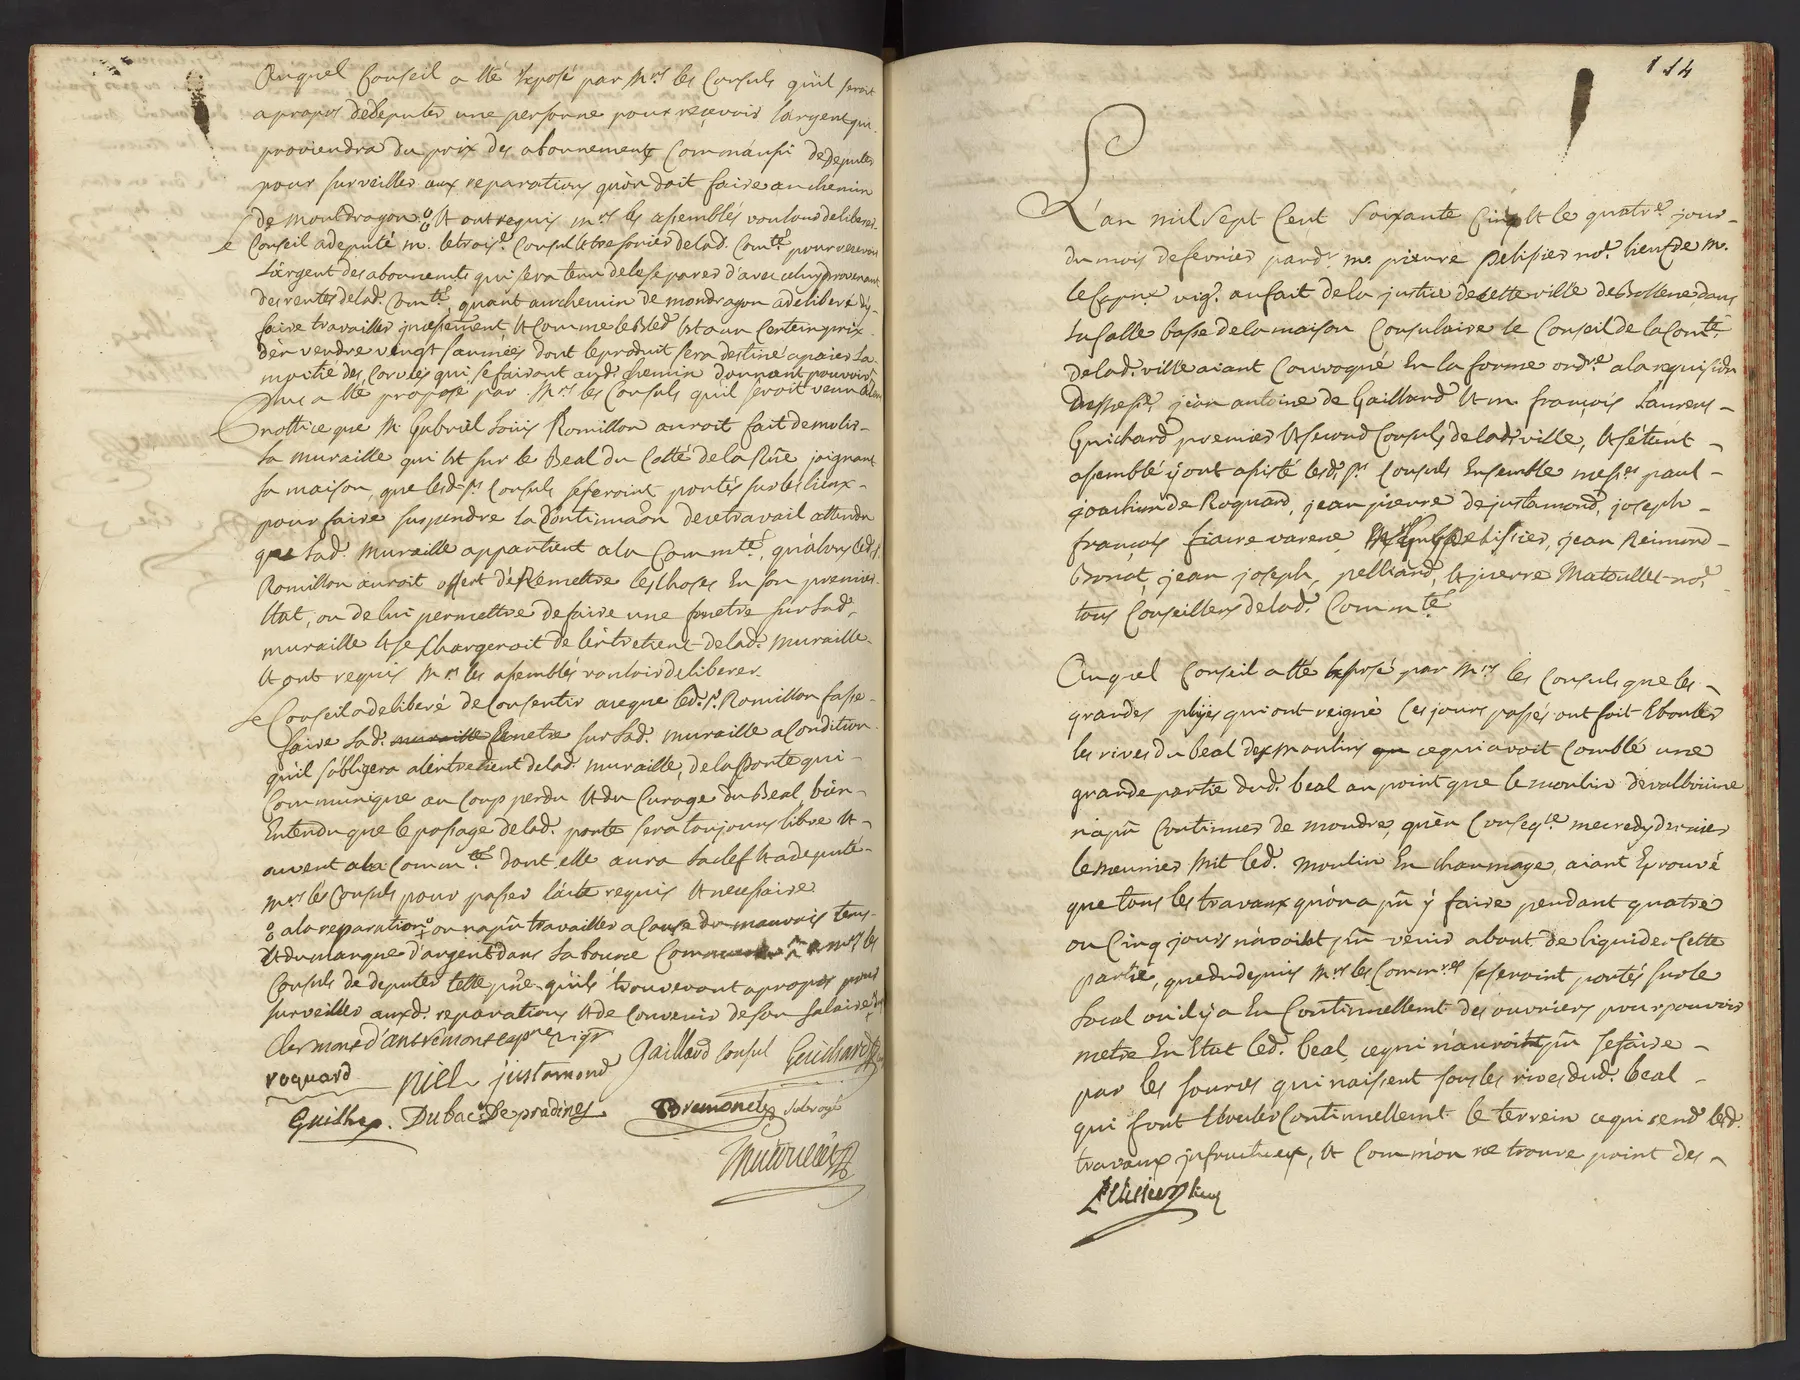 Auquel Conseil a été exposé par Mrs les Consuls qu'il seroit
a propos de deputer une personne pour recevoir l'argent qui
proviendra du prix des abonnements Comm'aussi de deputer
pour surveiller aux reparations qu'on doit faire au chemin
de Montdragon et ont requis mrs les assemblés vouloir deliberer
Le Conseil a deputé m. le trois.e Consul et tresorier de lad. Com.té pour recevoir
l'argent des abonnements qui sera tenu de le separer d'avec celuy provenant
des rentes de lad. Com.té, quant au chemin de mondragon a deliberé d'y
faire travailler et comme le Bled est a un Certein prix
d'en vendre vengt saumées dont le produit sera destiné a paier la
moitié des Corvées qui se fairont aud. chemin donnant pouvoir
Plus a été proposé par Mrs les Consuls qu'il seroit venu a leur
nottice que Mr Gabriel Louis Romillon auroit fait demolir
la muraille qui est sur le Beal du Cotté de la Rüe joignant
sa maison, que lesd. srs Consuls se seroint portés sur les lieux
pour faire suspendre la Continuaôn de ce travail attendu
que lad. muraille appartient a la Comm.té, qu'alors led. s.
Romillon auroit offert de Remettre les choses En son premier
Etat, ou de lui permettre de faire une fenetre sur lad.
muraille et se Chargeroit de l'entretient de lad. muraille
et ont requis Mrs les assemblés vouloir deliberer
Le Conseil a deliberé de Consentir a ce que led. sr. Romillon fasse
faire lad. muraille fenetre sur lad. muraille a Condition
qu'il s'obligera a l'entretient de lad. muraille, de la Porte qui
Communique au Coup perdu et du Curage du Beal, bien
Entendu que le passage de lad. porte sera toujours libre et
ouvert a la Comm.té dont elle aura la clef et a deputé
Mrs les Consuls pour passer l'acte requis et necessaire
a la reparation ou na pû travailler a Cause du mauvais tems
et du manque d'argent dans la bource a mrs les
Consuls de deputer telle pñe qu'ils trouveront a propos pour
surveiller auxd. reparations et de Convenir de son salaire
Clermont d'antremont capne vigr
roquard riel justamond Gaillard Consul Guichard
Guilhe. Dubac De pradines Bremonet subrogé

L'an mil sept Cent soixante Cinq et le quatr.e jour
du mois de fevrier pard. me pierre Pelissier nor. lieut de m.
le Capne vigr. au fait de la justice de cette ville de Bollene dans
la salle basse de la maison Consulaire le Conseil de la Comté
de lad. ville aiant Convoqué En la forme ordre a la requision
de messrs jean antoine de Gaillard et m françois Laurens
Guichard premier et second Consuls de lad. ville, et s'étent
assemblé y ont assisté lesd. srs Consuls Ensemble messrs paul
joachim de Roquard, jean pierre de justamond, joseph
françois fiacre varene Pelissier, jean Reimond
Bonot, jean joseph pelliard, et pierre Matoullet nor.
tous Conseillers de lad. Comm.té
Auquel Conseil a été Exposé par Mrs les Consuls que les
grandes pluyes qui ont reigné Ces jours passés ont fait Ebouler
les rives du beal des moulins ce qui avoit Comblé une
grande partie dud. beal au point que le moulin de valbrune
n'a pû Continuer de moudre, qu'en Conseqce mecredy dernier
le meunier mit led. moulin En chaumage, aiant Eprouvé
que tous les travaux qu'on a pû y faire pendant quatre
ou Cinq jours n'avoint pû venir about de liquider Cette
partie, que du depuis Mrs les Commres se seroint portés sur le
local ou il y a Eu Continuellemt des ouvriers pour pouvoir
metre En Etat led. beal, ce qui n'auroit pû se faire
par les sources qui naissent sous les rives dud. beal
qui font Ebouler Continuellemt le terrein ce qui rend lesd.
travaux infructueux, et Comm'on ne trouve point des
Pelissier lieut
114